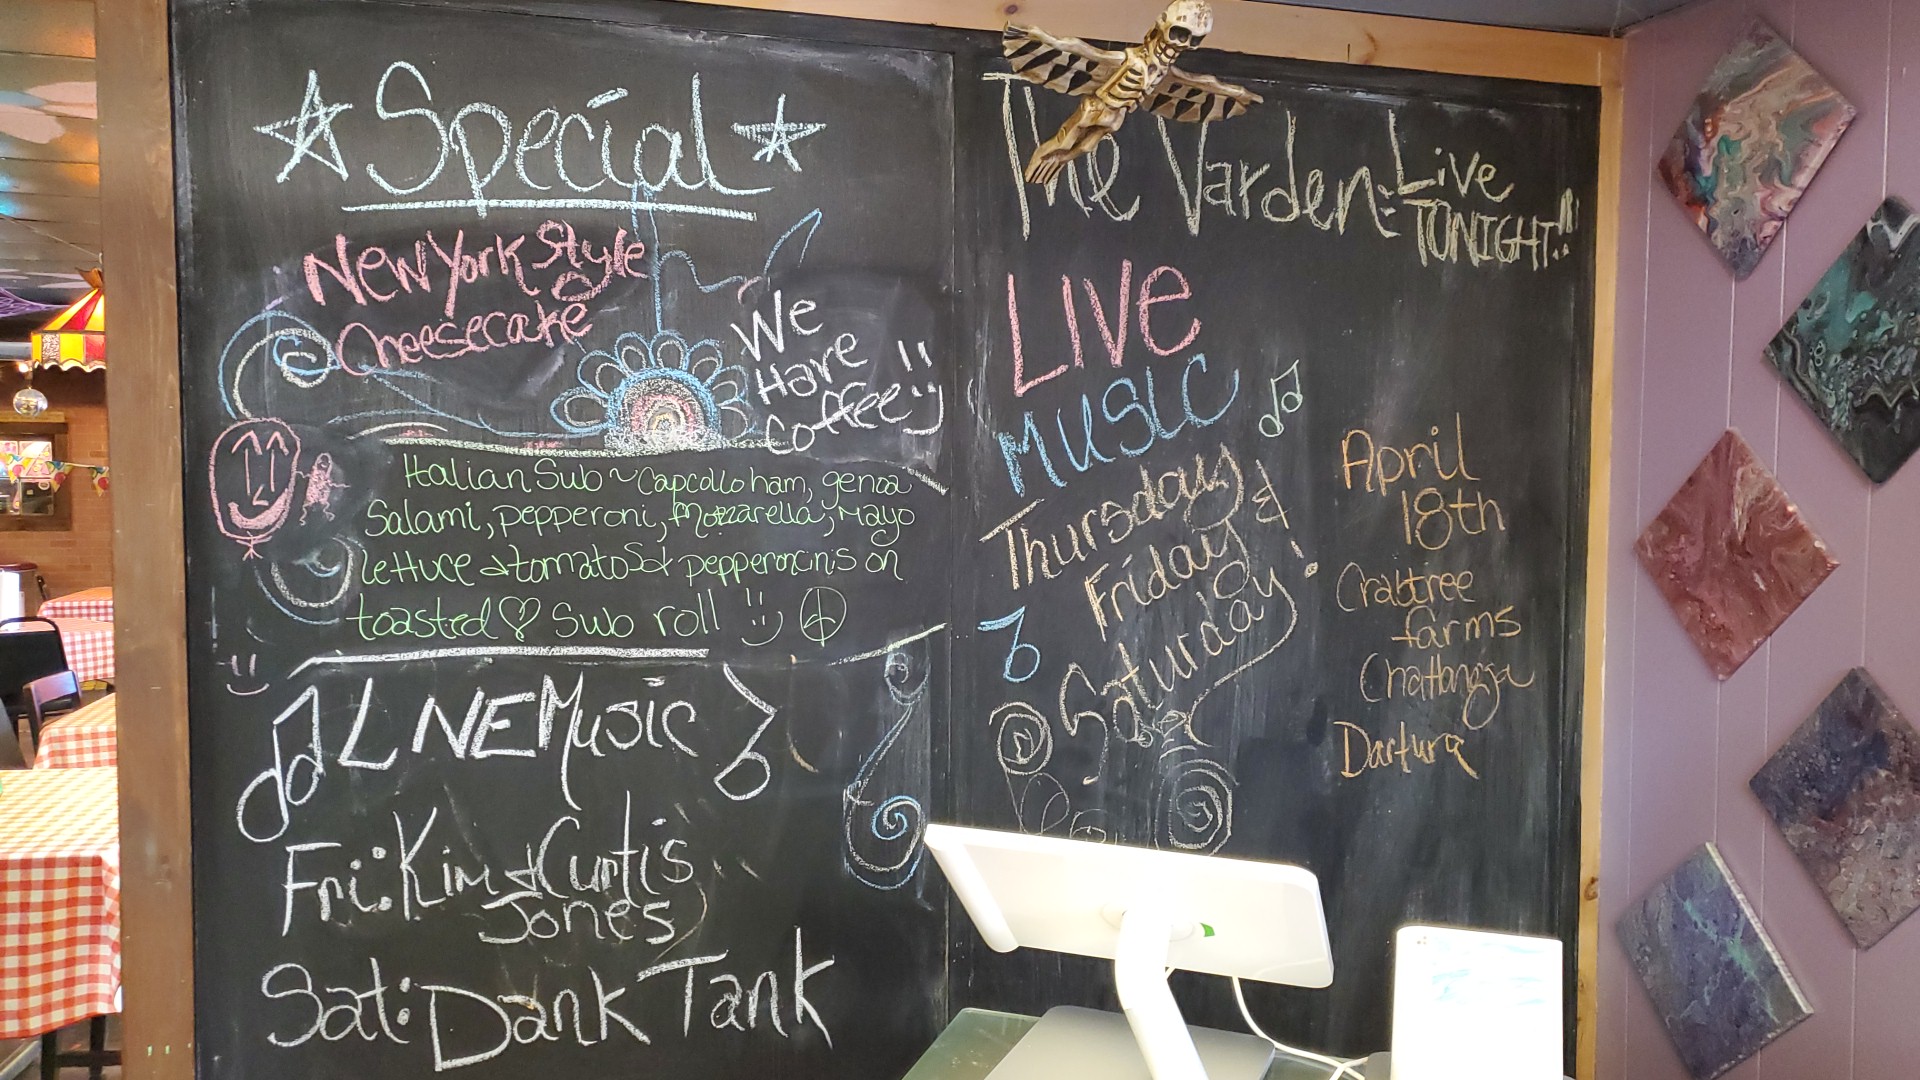 Special
New York Style
Cheesecake
We
Have
Coffee!!
Italian Sub ~ Capcollo ham, genoa
Salami, pepperoni, Mozzarella, Mayo
lettuce & tomatos & pepperoncinis on
toasted Sub roll
LIVE Music
Fri: Kim & Curtis
Jones
Sat: Dank Tank
The Varden: Live
TONIGHT!!!
LIVE
MUSIC
Thursday,
Friday &
Saturday!
April
18th
Crabtree
farms
Dartura